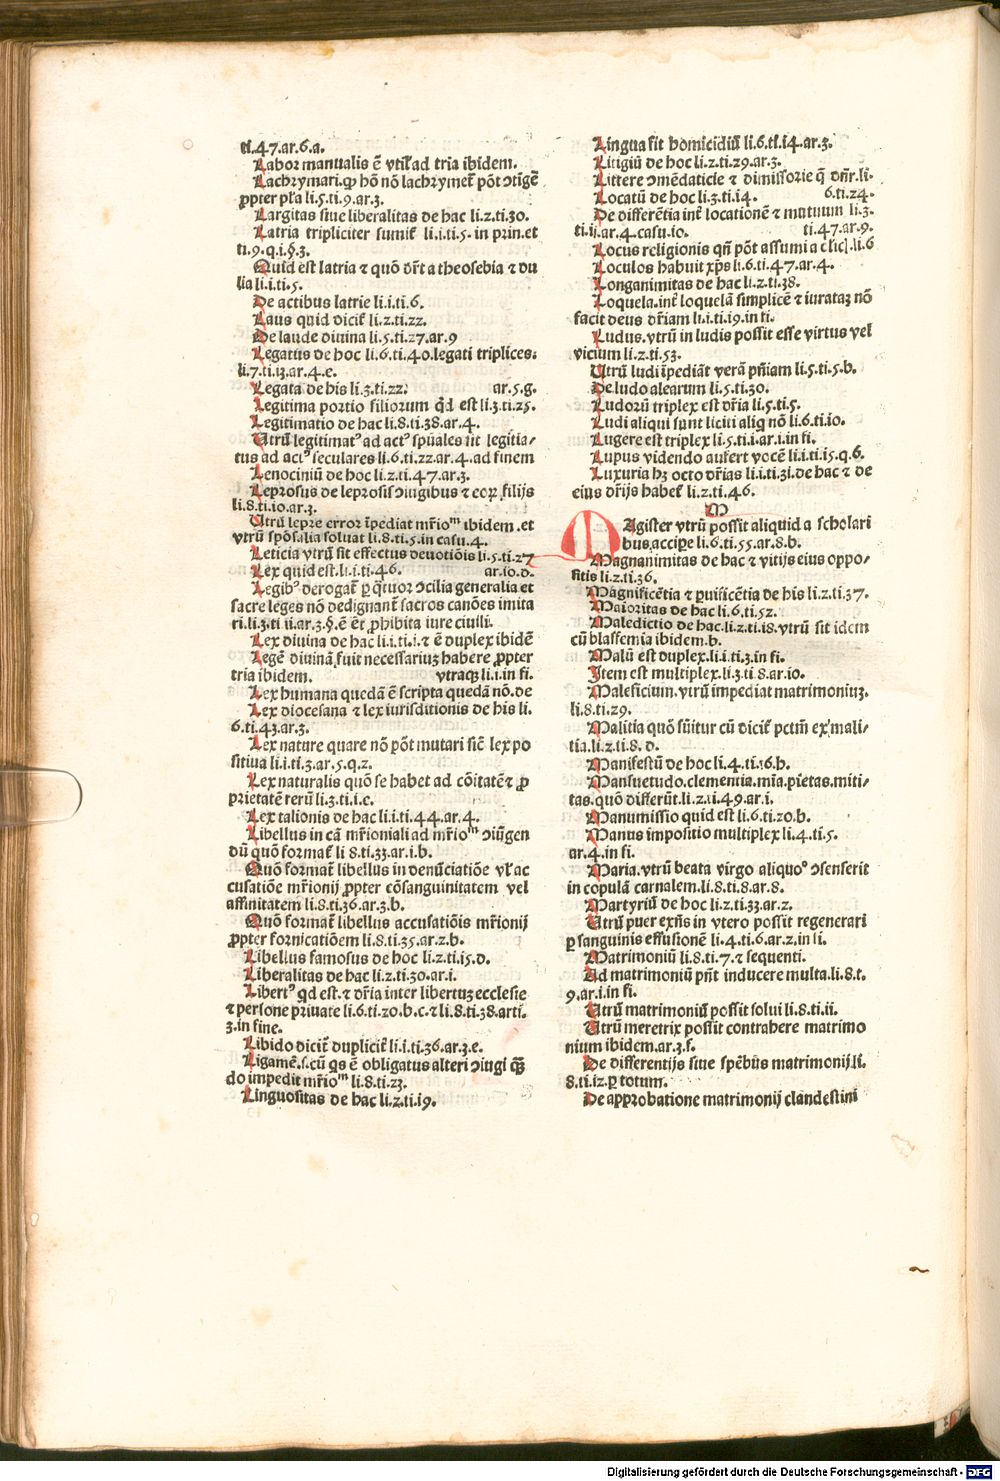 ti.47.ar.6.a.
Labor manualis ē vtil' ad tria ibidem.
Lachrymari. ꝙ hō nō lachrymet᷑ pōt ↄtīgē
ꝓpter pl'a li.5.ti.9.ar.3.
Largitas siue liberalitas de hac li.2.ti.30.
Latria tripliciter sumit᷑ li.i.ti.5. in prin.et
ti.9.q.i.§.3.
Quid est latria ⁊ quō dr̄t a theosebia ⁊ du
lia li.i.ti.5.
De actibus latrie li.i.ti.6.
Laus quid dicit᷑ li.2.ti.22.
De laude diuina li.5.ti.27.ar.9
Legatus de hoc li.6.ti.40.legati triplices.
li.7.ti.13.ar.4.e.
Legata de his li.3.ti.22. ar.5.g.
Legitima portio filiorum qd̄ est li.3.ti.25.
Legitimatio de hac li.8.ti.38.ar.4.
Utrū legitimatꝰ ad actꝰ spūales sit legitia/
tus ad actꝰ seculares li.6.ti.22.ar.4.ad finem
Lenociniū de hoc li.2.ti.47.ar.3.
Leprosus de leprosis ↄiugibus ⁊ eoꝝ filijs
li.8.ti.10.ar.3.
Utrū lepre error īpediat mr̄ioᵐ ibidem .et
vtrū spōsalia soluat li.8.ti.5.in casu.4.
Leticia vtrū sit effectus deuotiōis li.5.ti.27
Lex quid est.li.i.ti.46. ar.10.d.
Legibꝰ derogat᷑ ꝑ q̄tuor ↄcilia generalia et
sacre leges nō dedignant᷑ sacros canōes imita
ri.li.3.ti ii.ar.3.§.ē er̄ ꝓhibita iure ciuili.
Lex diuina de hac li.i.ti.i.⁊ ē duplex ibidē
Legē diuinā fuit necessariuꝫ habere ꝓpter
tria ibidem. vtracꝫ li.i.in fi.
Lex humana quedā ē scripta quedā nō.de
Lex diocesana ⁊ lex iurisditionis de his li.
6.ti.43.ar.3.
Lex nature quare nō pōt mutari sic̄ lex po
sitiua li.i.ti.3.ar.5.q.2.
Lex naturalis quō se habet ad cōitatē ⁊ ꝓ
prietatē rerū li.3.ti.i.c.
Lex talionis de hac li.i.ti.44.ar.4.
Libellus in cā mr̄ioniali ad mr̄ioᵐ ↄiūgen
dū quō format᷑ li 8.ti.33.ar.i.b.
Quō format᷑ libellus in denūciatiōe vl' ac
cusatiōe mr̄ionij ꝓpter cōsanguinitatem vel
affinitatem li.8.ti.36.ar.3.b.
Quō format᷑ libellus accusatiōis mr̄ionij
ꝓpter fornicatiōem li.8.ti.35.ar.2.b.
Libellus famosus de hoc li.2.ti.15.d.
Liberalitas de hac li.2.ti.30.ar.i.
Libertꝰ qd est.⁊ dr̄ia inter libertuꝫ ecclesie
⁊ persone priuate li.6.ti.20.b.c.⁊ li.8.ti.38.arti.
3.in fine.
Libido dicit᷑ duplicit᷑ li.i.ti.36.ar.3.e.
Ligamē.s.cū qs ē obligatus alteri ↄiugi qn̄
do impedit mr̄ioᵐ li.8.ti.23.
Linguositas de hac li.2.ti.19.
Lingua fit homicidiū li.6.ti.14.ar.3.
Litigiū de hoc li.2.ti.29.ar.3.
Littere ↄmēdaticie ⁊ dimissorie q̄ dn̄r.li.
Locatū de hoc li.3.ti.14. 6.ti.24.
De differētia int᷑ locationē ⁊ mutuum li.3.
ti.ii.ar.4.casu.10. ti.47.ar.9.
Locus religionis qn̄ pōt assumi a clic͛.li.6
Loculos habuit xp̄s li.6.ti.47.ar.4.
Longanimitas de hac li.2.ti.38.
Loquela.int᷑ loquelā simplicē ⁊ iurataꝫ nō
facit deus dr̄iam li.i.ti.19.in fi.
Ludus.vtrū in ludis possit esse virtus vel
vicium li.2.ti.53.
Utrū ludi īpediāt verā pn̄iam li.5.ti.5.b.
De ludo alearum li.5.ti.30.
Ludorū triplex est dr̄ia li.5.ti.5.
Ludi aliqui sunt liciti aliq nō li.6.ti.10.
Lugere est triplex li.5.ti.i.ar.i.in fi.
Lupus videndo aufert vocē li.i.ti.15.q.6.
Luxuria hꝫ octo dr̄ias li.i.ti.31.de hac ⁊ de
eius dr̄ijs habet᷑ li.2.ti.46.
M
MAgister vtrū possit aliquid a scholari
bus accipe li.6.ti.55.ar.8.b.
Magnanimitas de hac ⁊ vitijs eius oppo/
sitis li.2.ti.36.
Magnificētia ⁊ ꝑuificētia de his li.2.ti.37.
Maioritas de hac li.6.ti.52.
Maledictio de hac.li.2.ti.18.vtrū sit idem
cū blasfemia ibidem.b.
Malū est duplex.li.i.ti.3.in fi.
Item est multiplex.li.3.ti 8.ar.10.
Maleficium.vtrū impediat matrimoniuꝫ.
li.8.ti.29.
Malitia quō sūitur cū dicit᷑ pctm̄ ex'mali/
tia.li.2.ti.8. d.
Manifestū de hoc li.4.ti.16.h.
Mansuetudo.clementia.mīa.pietas.miti/
tas.quō differūt.li.2.ti.49.ar.i.
Manumissio quid est li.6.ti.20.b.
Manus impositio multiplex li.4.ti.5.
ar.4.in fi.
Maria.vtrū beata virgo aliquoº ↄsenserit
in copulā carnalem.li.8.ti.8.ar.8.
Martyriū de hoc li.2.ti.33.ar.2.
Utrū puer exn̄s in vtero possit regenerari
ꝑ sanguinis effusionē li.4.ti.6.ar.2.in fi.
Matrimoniū li.8.ti.7.⁊ sequenti.
Ad matrimoniū pn̄t inducere multa.li.8.t.
9.ar.i.in fi.
Utrū matrimoniū possit solui li.8.ti.ii.
Utrū meretrix possit contrahere matrimo
nium ibidem.ar.3.f.
De differentijs siue spēbus matrimonij.li.
8.ti.12.ꝑ totum.
De approbatione matrimonij clandestini
Digitalisierung gefördert durch die Deutsche Forschungsgemeinschaft - DFG